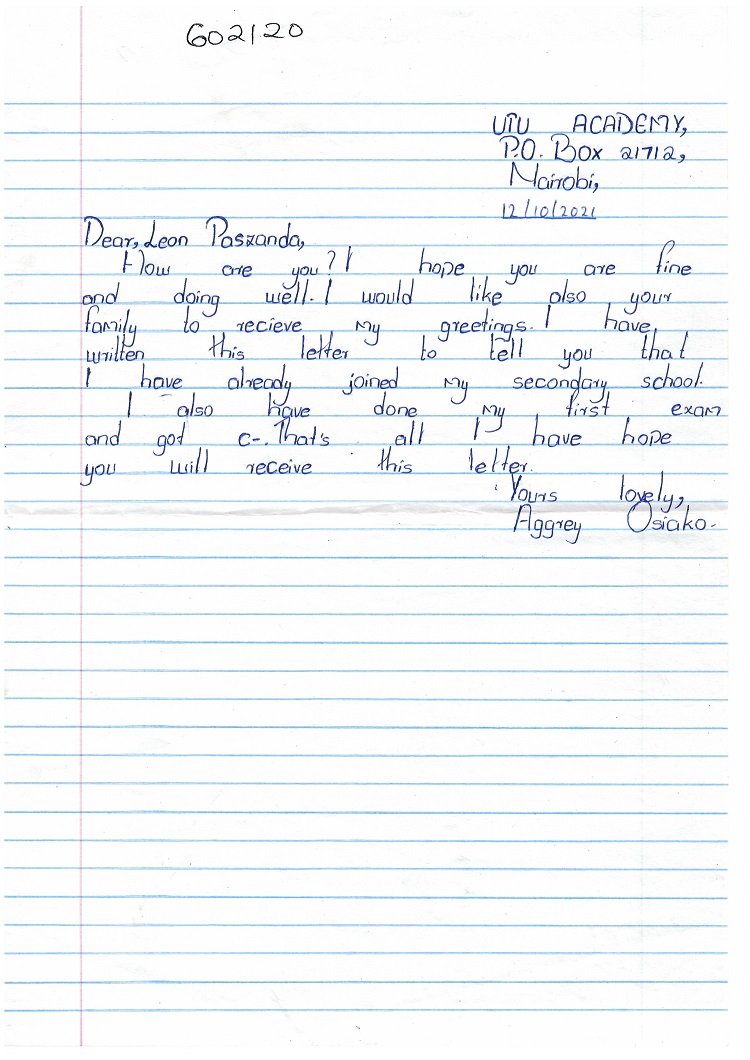 602120
UTU ACADEMY,
P.O. Box 21712,
Nairobi,
12/10/2021
Dear, Leon Paszanda,
How are you? I hope you are fine
and doing well. I would like also your
family to recieve my greetings. I have,
written this letter to tell you that
I have already joined my secondary school.
I also have done my first exam
and got c-. That's all I have hope
you will receive this letter.
Yours lovely,
Aggrey Osiako.